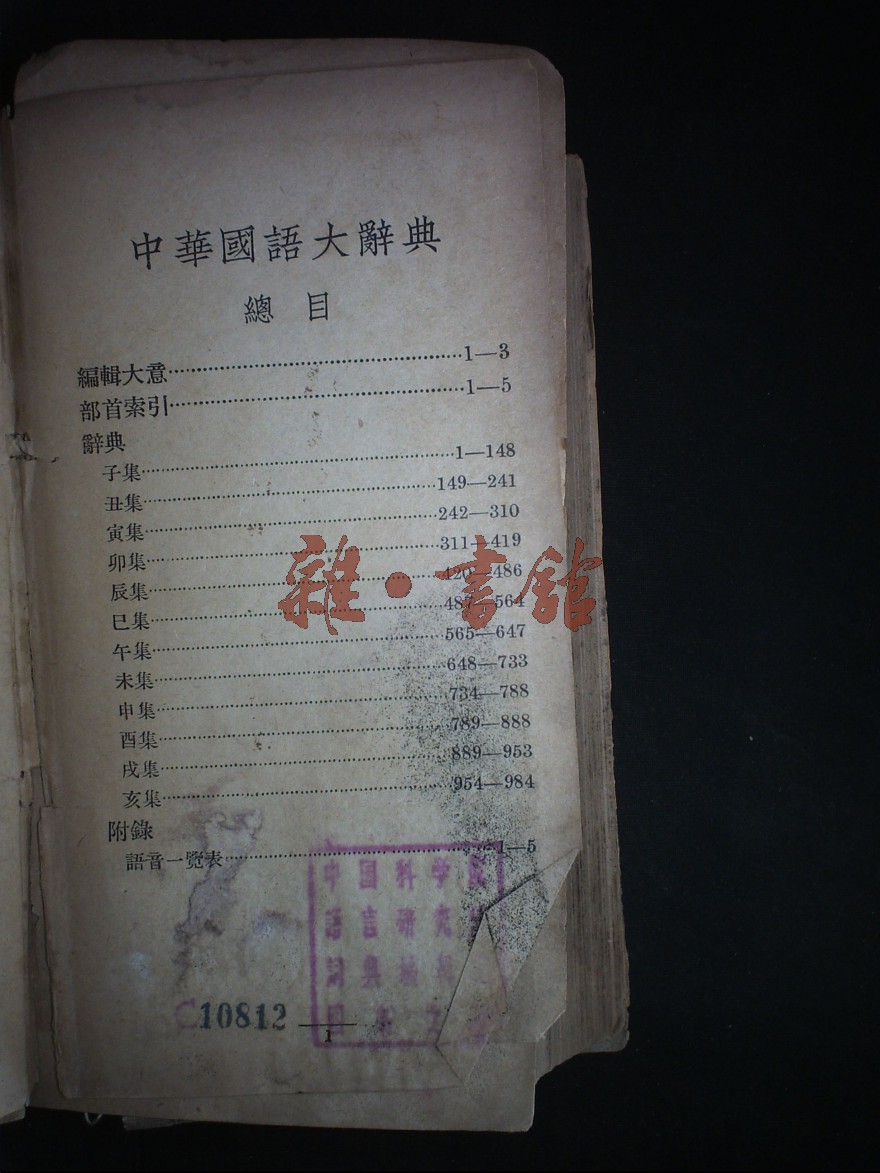 中華國語大辭典
總目
編輯大意……1—3
部首索引……1—5
辭典
子集……1—148
丑集……149—241
寅集……242—310
卯集……311—419
辰集……420—486
巳集……487—564
午集……565—647
未集……648—733
申集……734—788
酉集……789—888
戌集……889—953
亥集……954—984
附錄
語音一覽表……1—5
雜·書館
中国科学
语言研究
词典编
C10812
1